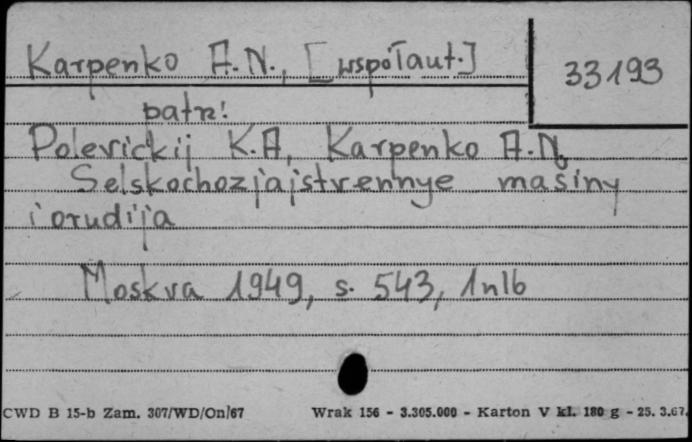 Karpenko A. N., [współaut.]
33193
patrz!
Polevickij K. A, Karpenko A. N.
Selskochozjajstvennye mašiny
i orudija
Moskva 1949, s. 543, 1 nlb
CWD B 15-b Zam. 307/WD/On/67 Wrak 156 - 3.305.000 - Karton V kl. 180 g - 25. 3.67.